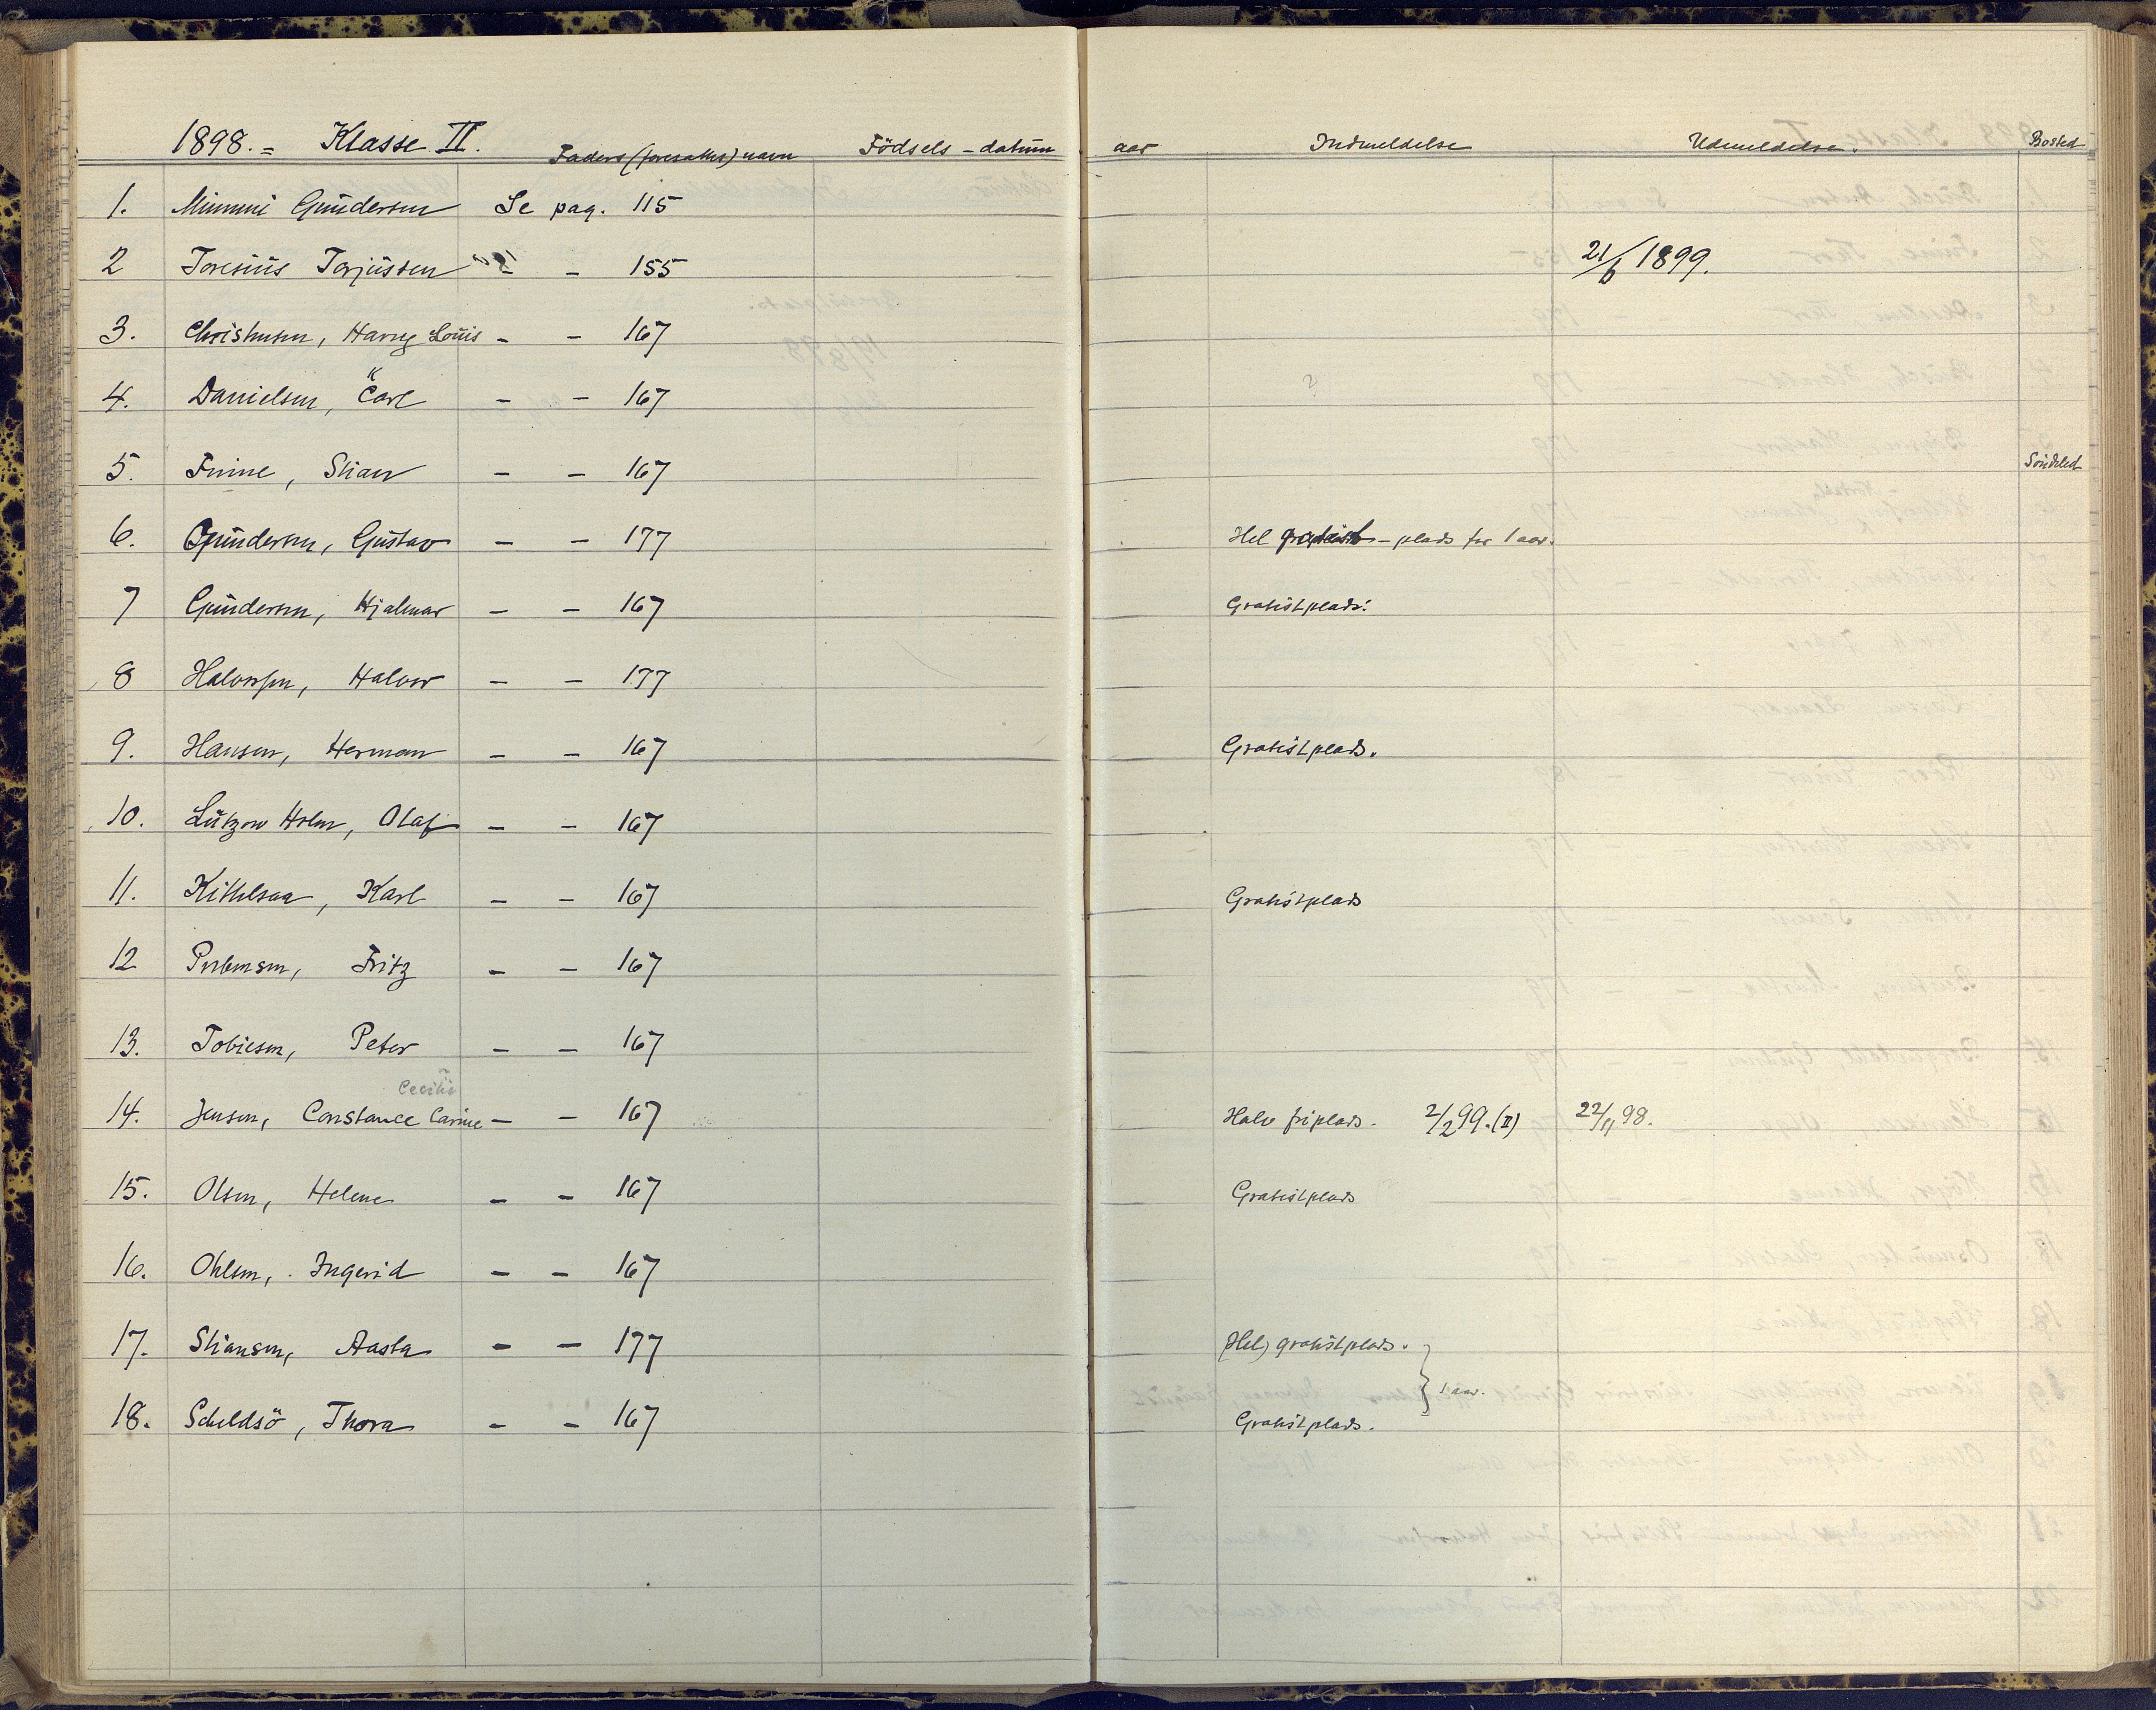 1898. = Klasse II. Faders (foresattes) navn Födsels - datum aar Indmeldelse Udmeldelse. Bosted
1. Mimmi Gundersen Se pag. 115
2 Toresius Torjussen - - 155 21/6 1899.
3. Christensen, Harry Louis - - 167
4. Danielsen, Carl - - 167
K
5. Finne, Stian - - 167 Söndeled
6. Gundersen, Gustav - - 177 Hel gratist - plads for 1 aar.
7 Gundersen, Hjalmar - - 167 Gratistplads.
8 Halvorsen, Halvor - - 177
9. Hansen, Herman - - 167 Gratistplads.
10. Lützow Holm, Olaf - - 167
11. Kittelsaa, Karl - - 167 Gratistplads
12 Prebensen, Fritz - - 167
13. Tobiesen, Peter - - 167
Cecilie
14. Jensen, Constance Carine - - 167 Halv friplads. 2/2 99. (II) 22/11 98.
15. Olsen, Helene - - 167 Gratistplads
16. Ohlsen, Ingerid - - 167
17. Stiansen, Aasta - - 177 (Hel) gratistplads.
} 1 aar.
18. Scheldsö, Thora - - 167 Gratistplads.